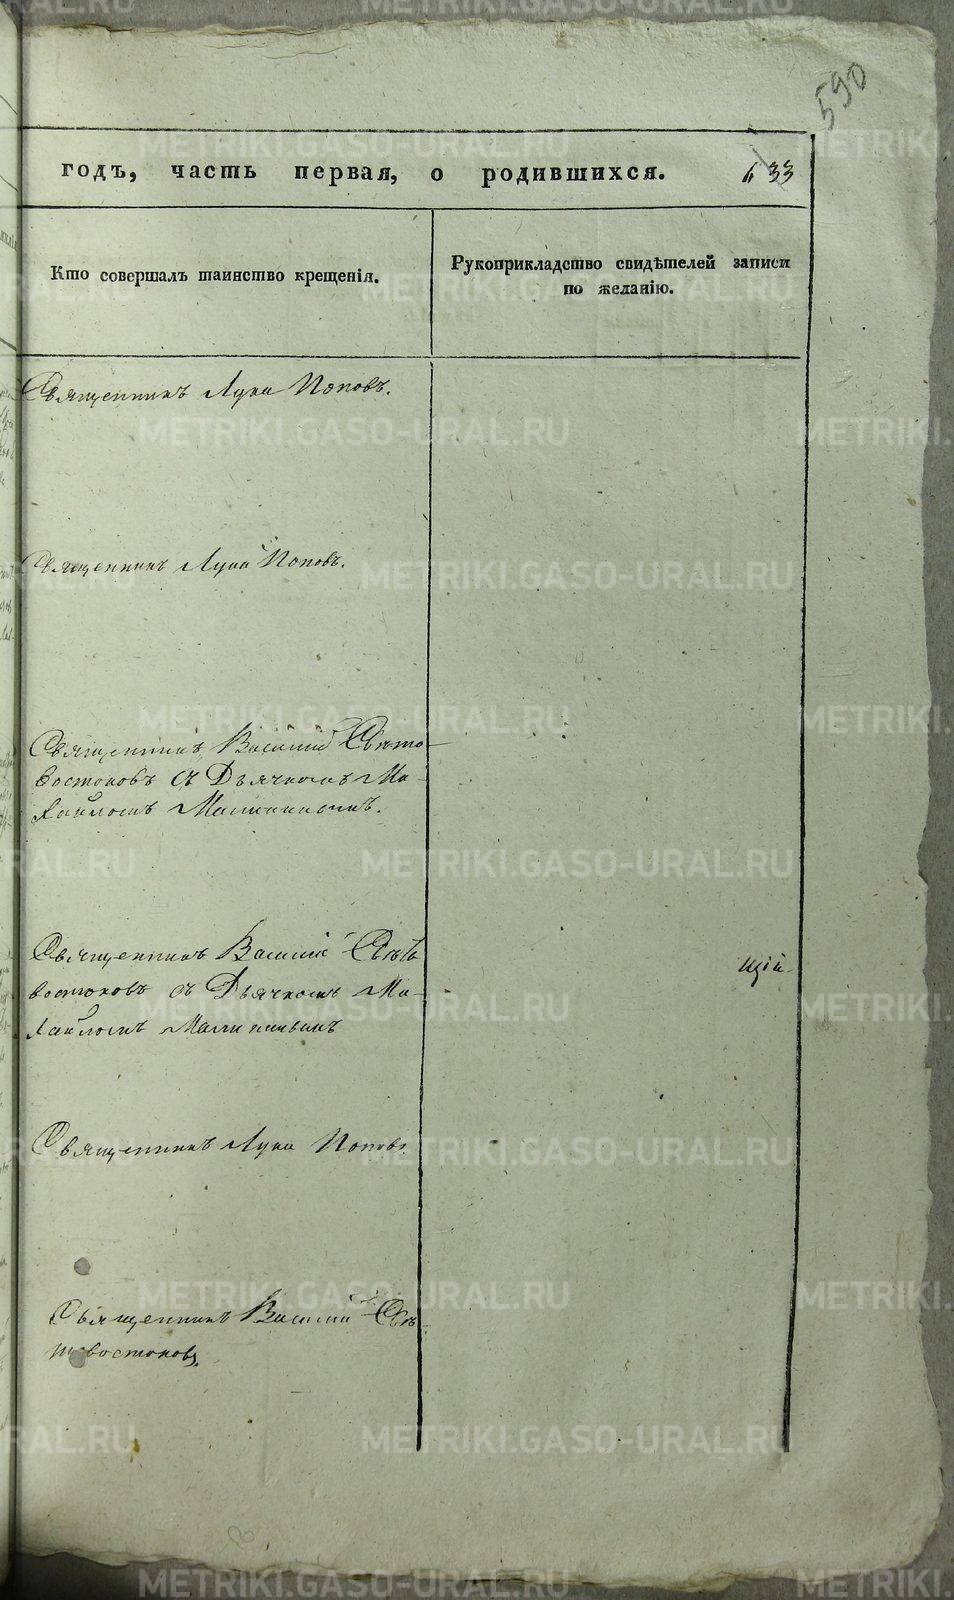 590
годъ, часть первая, о родившихся. 433
Кто совершалъ таинство крещенія.
Рукоприкладство свидѣтелей записи
по желанію.
Священникъ Лука Поповъ.
Священникъ Лука Поповъ.
Священникъ Василий Свѣто-
востоковъ съ Дьячкомъ Ми-
хайломъ Малининомъ.
Священникъ Василий Свѣто
востоковъ съ Дьячкомъ Ми-
хайломъ Малининымъ
щій
Священникъ Лука Поповъ.
Священникъ Василий Свѣ-
товостоковъ.
METRIKI.GASO-URAL.RU